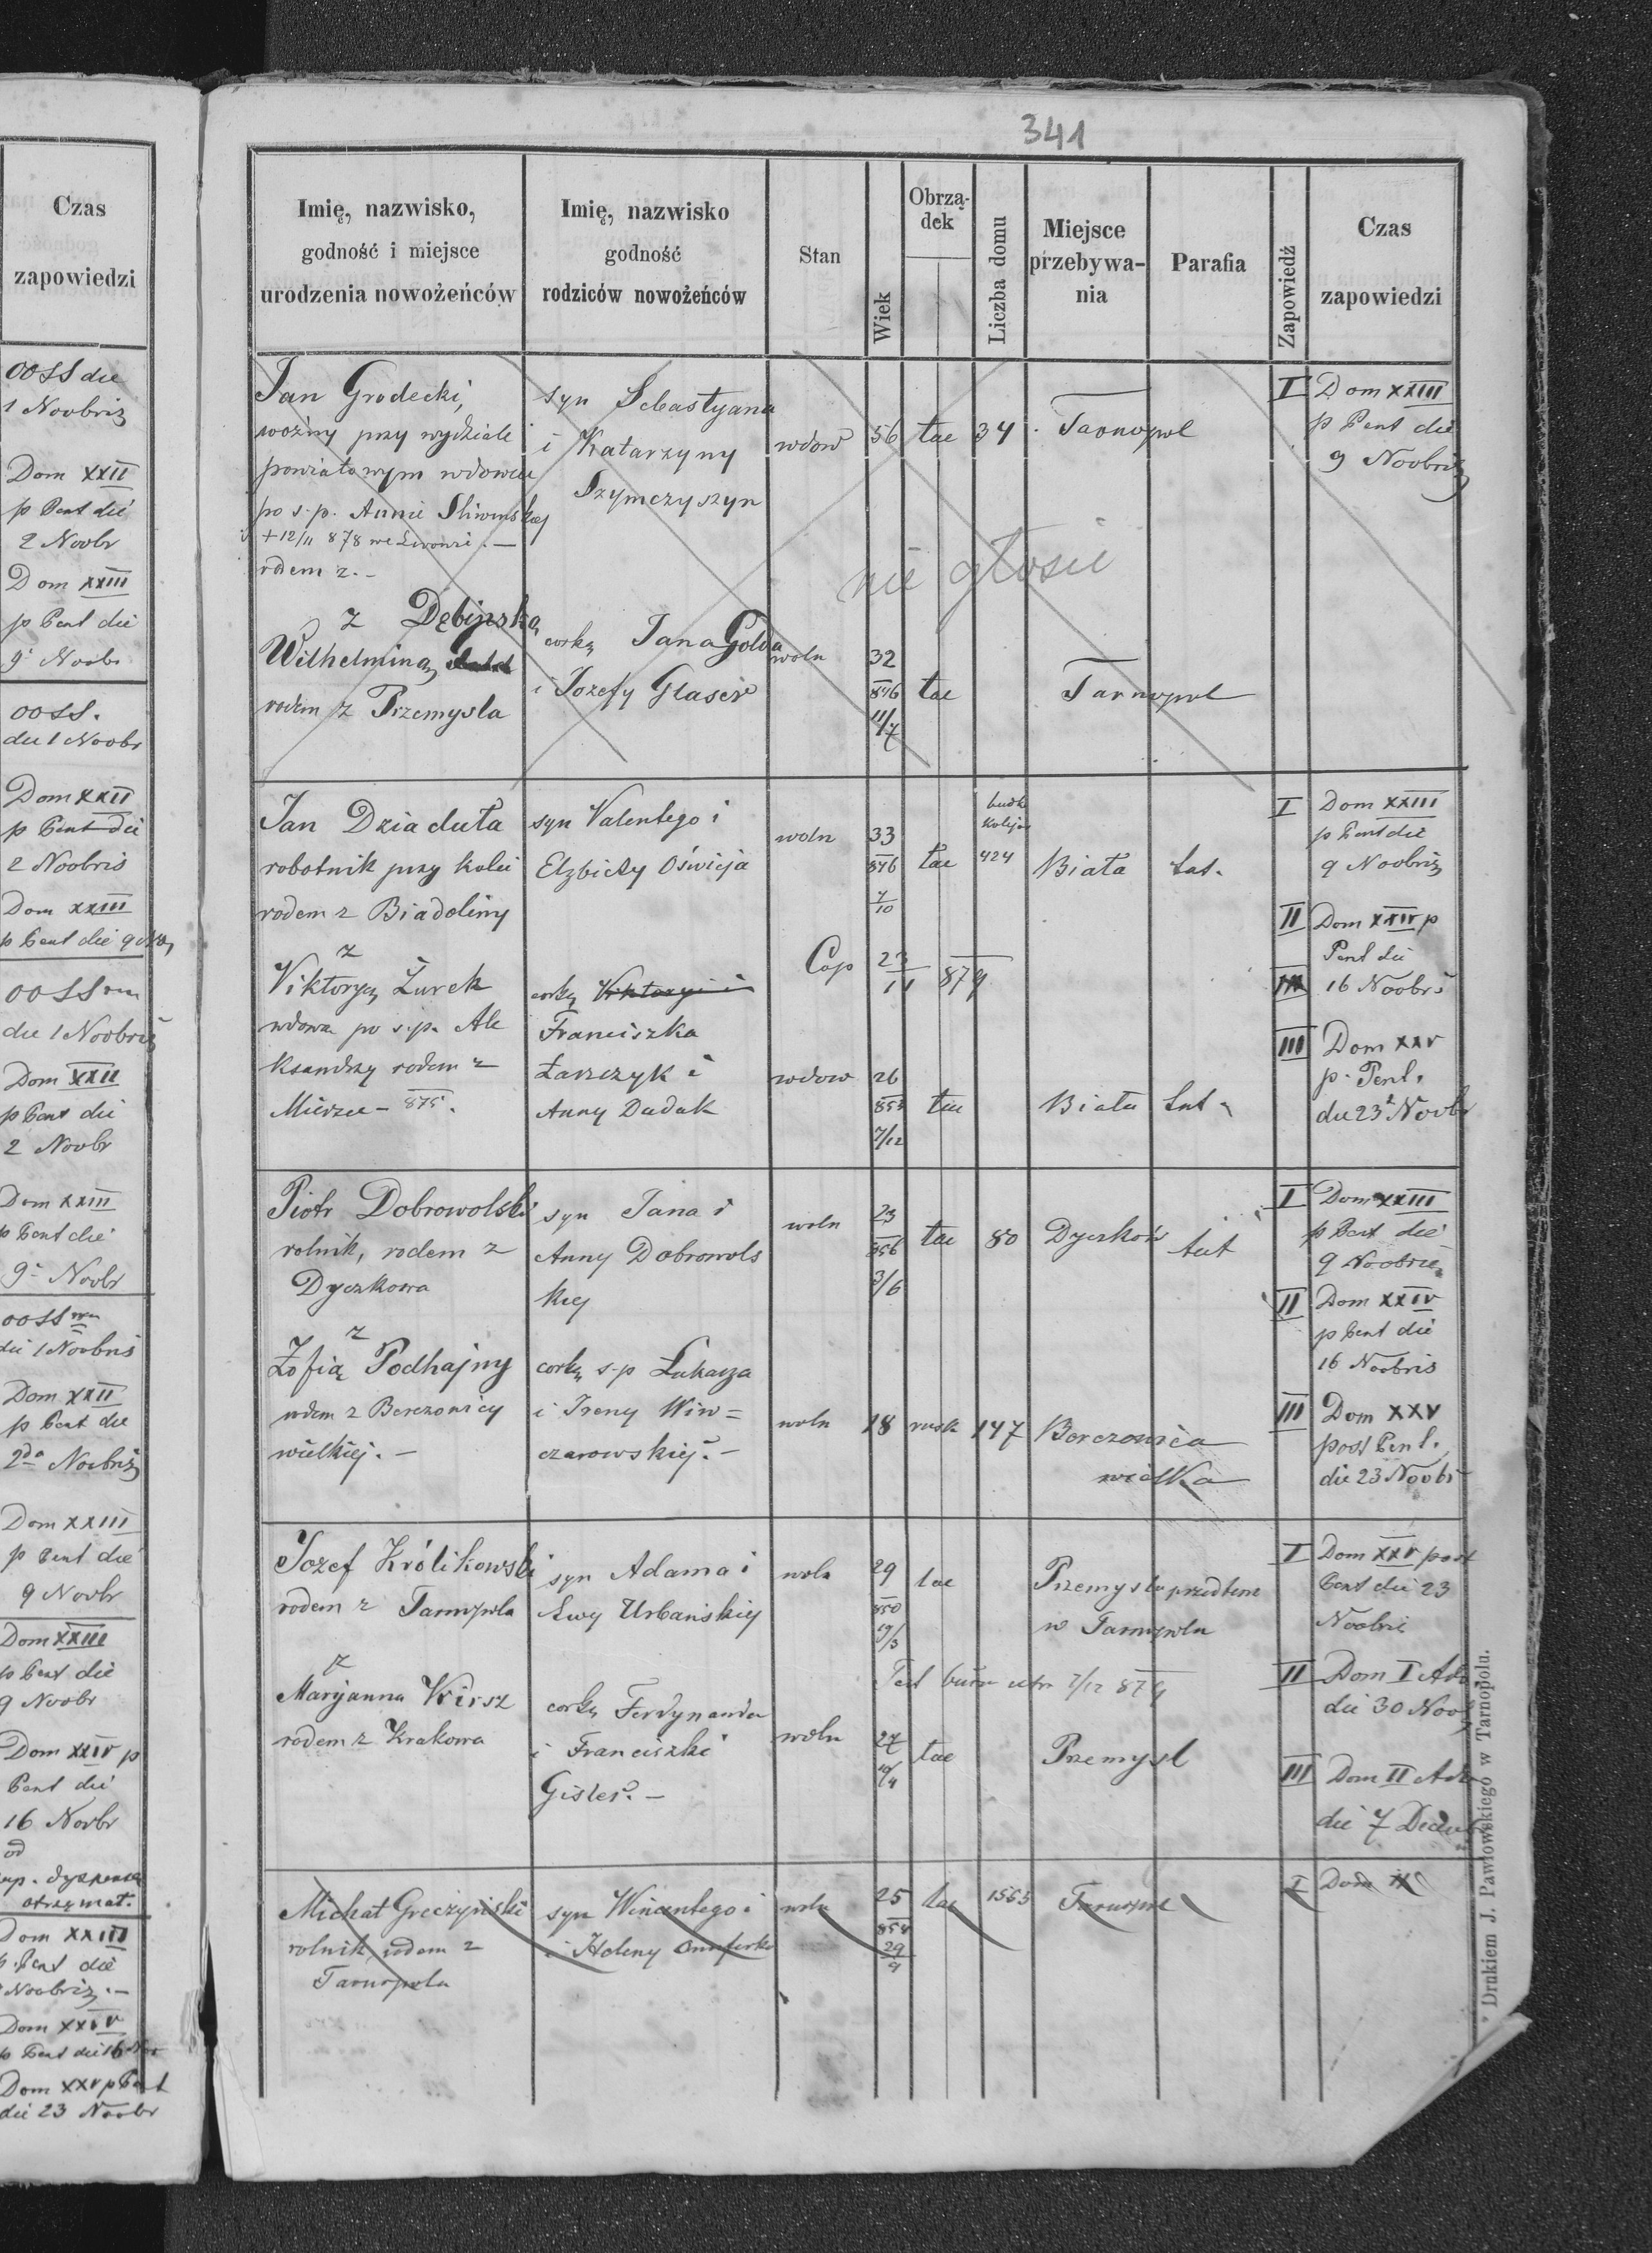 Czas
zapowiedzi
OOSS die
1 Novbris
Dom XXII
p Pent die
2 Novbr
Dom XXIII
p Pent die
9 Novbr
OOSS.
die 1 Novbr
Dom XXII
p Pent die
2 Novbris
Dom XXIII
p Pent die 9
OOSS
die 1 Novbris
Dom XXII
p Pent die
2 Novbr
Dom XXIII
p Pent die
9 Novbr
OOSS
die 1 Novbris
Dom XXII
p Pent die
2da Novbris
Dom XXIII
p Pent die
9 Novbr
Dom XXIII
p Pent die
9 Novbr
Dom XXIV p
Pent die
16 Novbr
od
dyspensę
otrzymał.
Dom XXIII
p. Pent die
Novbris.-
Dom XXIV
p Pent die 16 Nov
Dom XXV p Pent
die 23 Novbr
341
Imię, nazwisko,
godność i miejsce
urodzenia nowożeńców
Imię, nazwisko
godność
rodziców nowożeńców
Stan
Wiek
Obrzą-
dek
Liczba domu
Miejsce
przebywa-
nia
Parafia
Zapowiedź
Czas
zapowiedzi
Jan Grodecki,
woźny przy wydziale
powiatowym wdowiec
po s.p. Annie Sliwinskiej
+ 12/11 878 we Lwowie.-
rodem z.-
syn Sebastyana
i Katarzyny
Szymczyszyn
wdow 56 łac 34 Tarnopol
I Dom XXIII
p Pent die
9 Novbris
nie głosić
z Dębińską
Wilhelminą
rodem z Przemysla
corką Jana Golda
i Jozefy Glaser
woln 32
846
11/7
łac Tarnopol
Jan Dziaduła
robotnik przy kolei
rodem z Biadoliny
syn Valentego i
Elzbiety Oświęja
woln 33
846
7/10
łac
budk
kolejow
424
Biała tut.
I Dom XXIII
p Pent die
9 Novbris
II Dom XXIV p
Pent die
16 Novbris
III Dom XXV
p. Pent.
die 23 Novbr
Cop 23/11 879
z
Viktoryą Żurek
wdowa po s.p. Ale
ksandrzy rodem z
875.
corką Viktoryi i
Franciszka
Łaszczyk i
Anny Dudak
wdow 26
853
7/12
łac Biała tut.
Piotr Dobrowolski
rolnik, rodem z
Dyczkowa
syn Jana i
Anny Dobrowols
kiej
woln 23
856
3/6
łac 80 Dyczków tut
I Dom XXIII
p Pent die
9 Novbris
II Dom XXIV
p Pent die
16 Novbris
III Dom XXV
post Pent.
die 23 Novbr
z
Zofią Podhajny
rodem z Berezowicy
wielkiej.-
corką s.p Łukasza
i Ireny Win=
czarowskiej.-
woln 18 rusk 147 Berezowica
wielka
Jozef Królikowski
rodem z Tarnopola
syn Adama i
Ewy Urbańskiej
woln 29
850
19/3
łac
Przemysl przedtem
w Tarnopolu
I Dom XXV post
Pent die 23
Novbris
II Dom I Adv
die 30 Nov
III Dom II Adv
die 7 Decembr
7/12 879
z
Maryanna Kirsz
rodem z Krakowa
corką Ferdynanda
i Franciszki
Gisler.-
woln 27
łac Przemysl
Michał Greczyński
rolnik rodem z
Tarnopola
syn Wincentego i
i Heleny Onuferko
woln 25
854
29/9
łac 1565 Tarnopol
I Dom
* Drukiem J. Pawłowskiego w Tarnopolu.